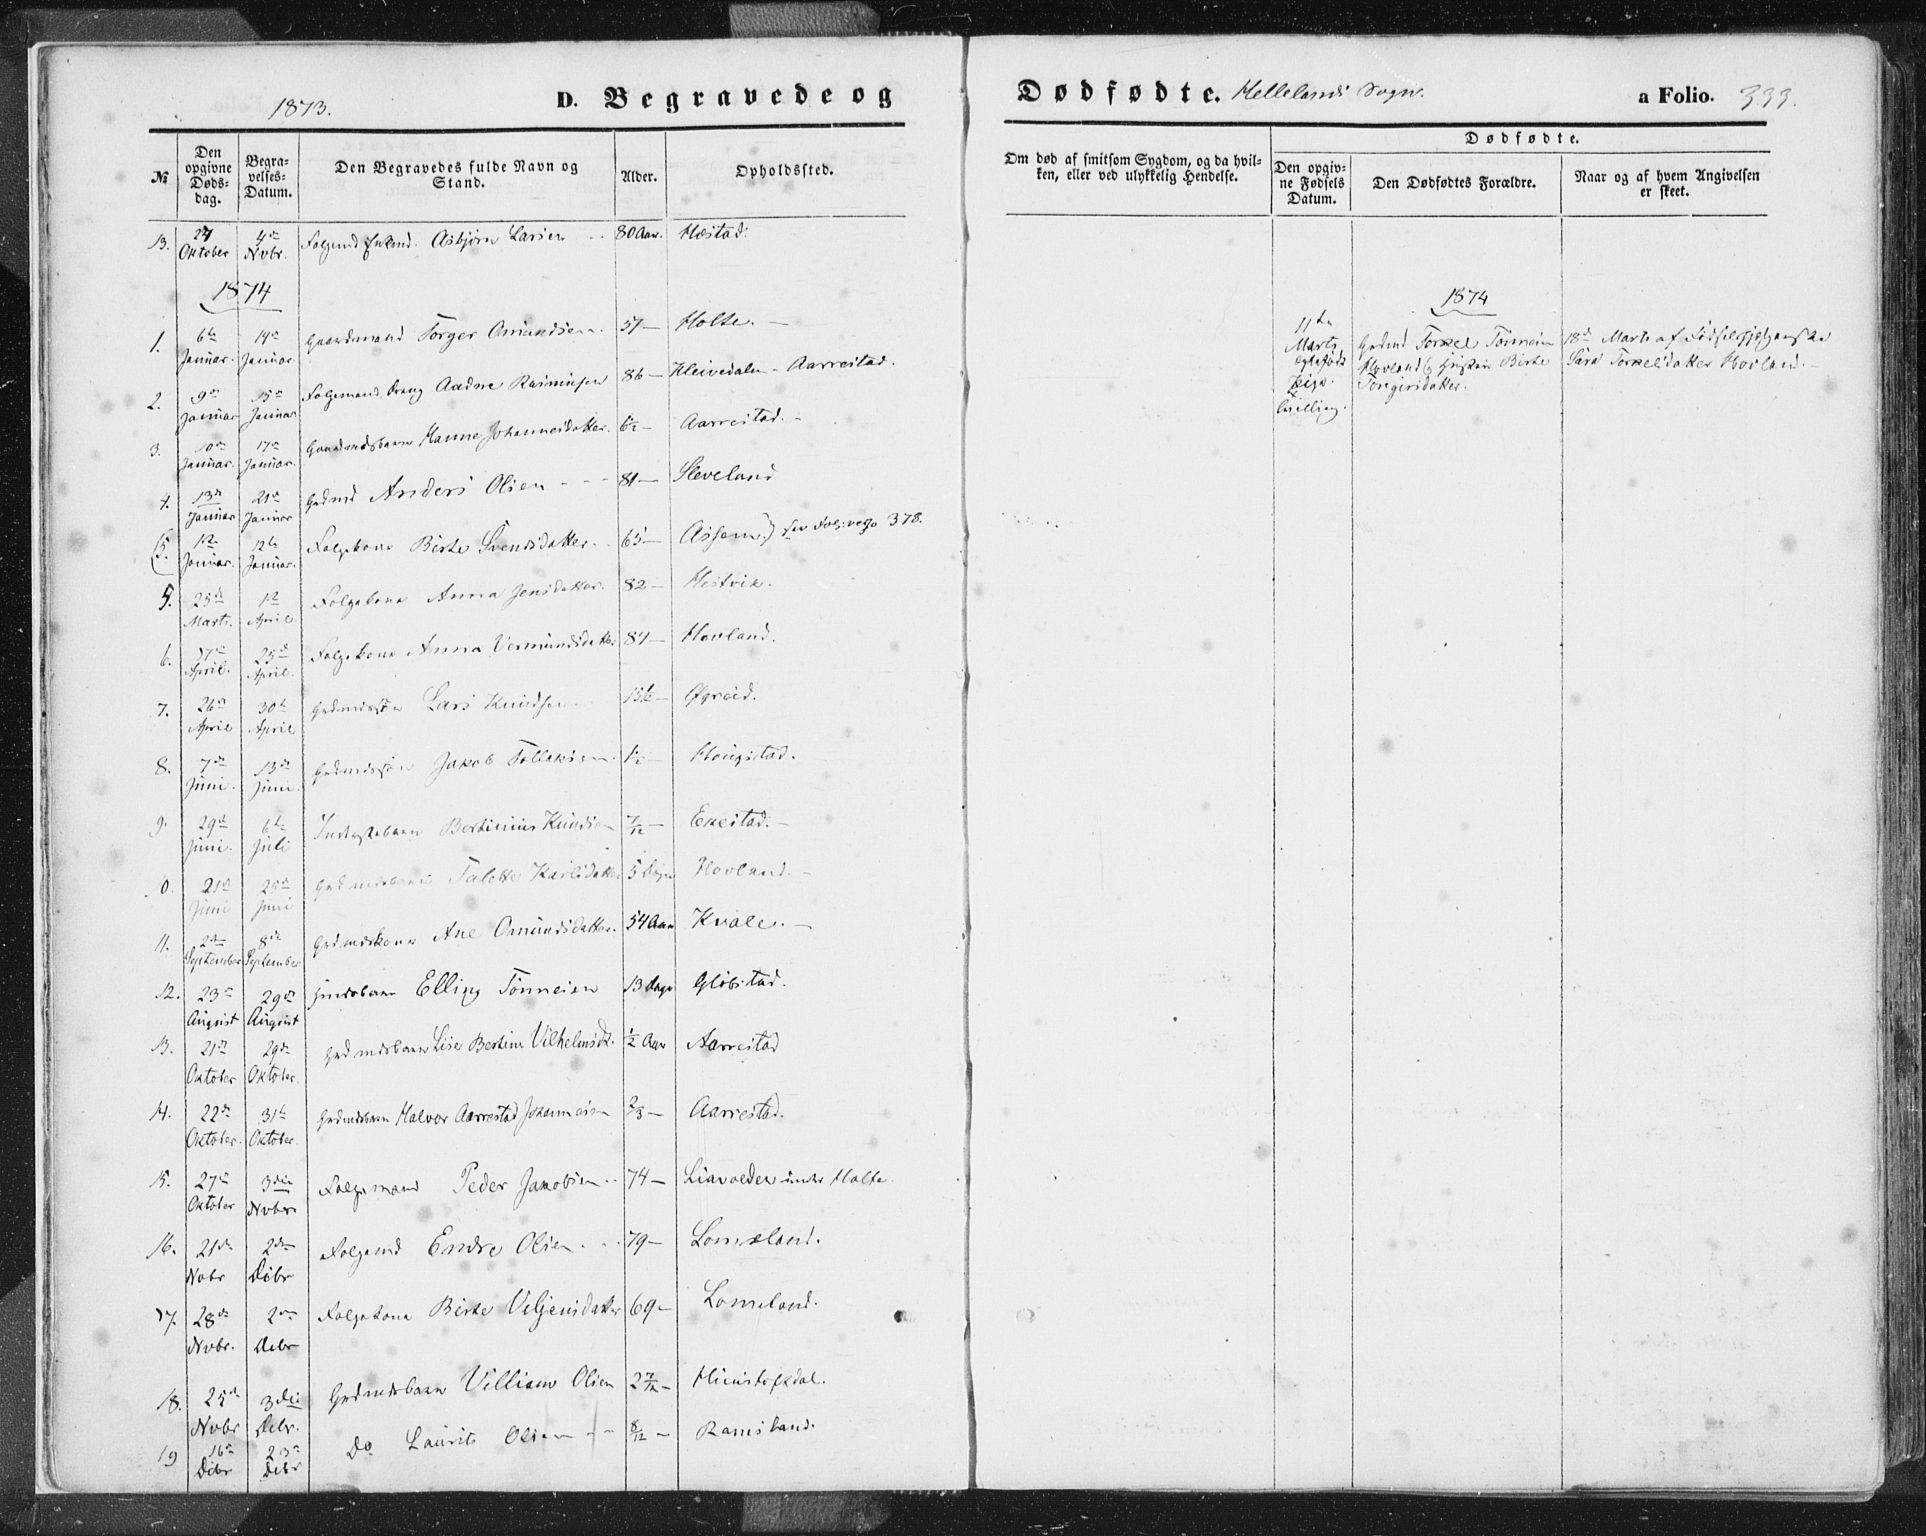 1873.
D. Begravede og
Dødfødte. Hellelands Sogn.
a Folio. 333.
№
Den opgivne Døds-dag.
Begra-velses-Datum.
Den Begravedes fulde Navn og Stand.
Alder.
Opholdssted.
Om død af smitsom Sygdom, og da hvil-
ken, eller ved ulykkelig Hendelse.
Dødfødte.
Den opgiv-ne Fødsels Datum.
Den Dødfødtes Forældre.
Naar og af hvem Angivelsen er skeet.
13. Oktober 4de Novbr. Asbjørn Larsen 80 Aar. Hæstad.
1874
1. 6te Januar. 14de Januar. Gaardmand Torger Omundsen 57 — Holte. —
2. 9de Januar 15de Januar Aadne Rasmusen 86 — Kleivedalen - Aarrestad.
3. 10de Januar. 17de Januar. Gaardmdsbarn Hanne Johannesdatter. 6/12 — Aarrestad. -
4. 13de Januar 21de Januar Grdmd Anders Olsen - - - 81 — Sleveland
(5. 12te Januar. 12te Januar. Folgekone Birte Svendsdatter. 65 — Assem.) see Fol: 378.
5. 25de Marts. 1te April. Folgekone Anna Jensdatter. 82 — Hestvik.
6. 17de April. 25de April. Folgekone Anna Vermundsdatter 84 — Hovland.
7. 26de April 30te April Grdmdssøn Lars Knudsen 15½ — Øgreid.
8. 7de Juni. 13de Juni. Grdmdssøn Jakob Tollaksen ½ — Haugstad.
9. 29de Juni. 6te Juli Bertinius Knudsen 7/12 — Egestad. —
10. 21de Juni 25de Juni Grdmdsbarn Talette Karlsdatter 5 Dage Hovland. -
11. 2den September 8de September Grdmdskone Ane Omundsdatter. 54 Aar Kvale. —
12. 23de August 29de August Elling Tønnesen 13 Dage Gløbstad.
13. 21de Oktober 29de Oktober. Grdmdsbarn Lise Bertine Vilhelmsdt. ½ Aar Aarrestad
14. 22de Oktober. 31te Oktober. Grdmdsbarn Halvor Aarrestad Johannesen 2/3 — Aarrestad.
15. 27de Oktober 3die Novbr Folgemand Peder Jakobsen 74 — Liavolden under Holte
16. 21de Novbr 2den Debr Folgemd Endre Olsen 79 — Lomeland.
17. 28de Novbr. 2den Debr Folgekone Birte Veljensdatter 69 - Lomeland.
18. 25de Novbr 3die Debr. Grdmdsbarn Villiam Olsen 2 7/12 —
19 16de Debr 23de Debr Do Laurits Olsen - - 8/12 — Ramsland.
1874
11te Marts
Grdmd Torkel Tønnesen
Hovland og Hustru Birte
18de Marts af
Sara Torkelsdatter Hovland. -